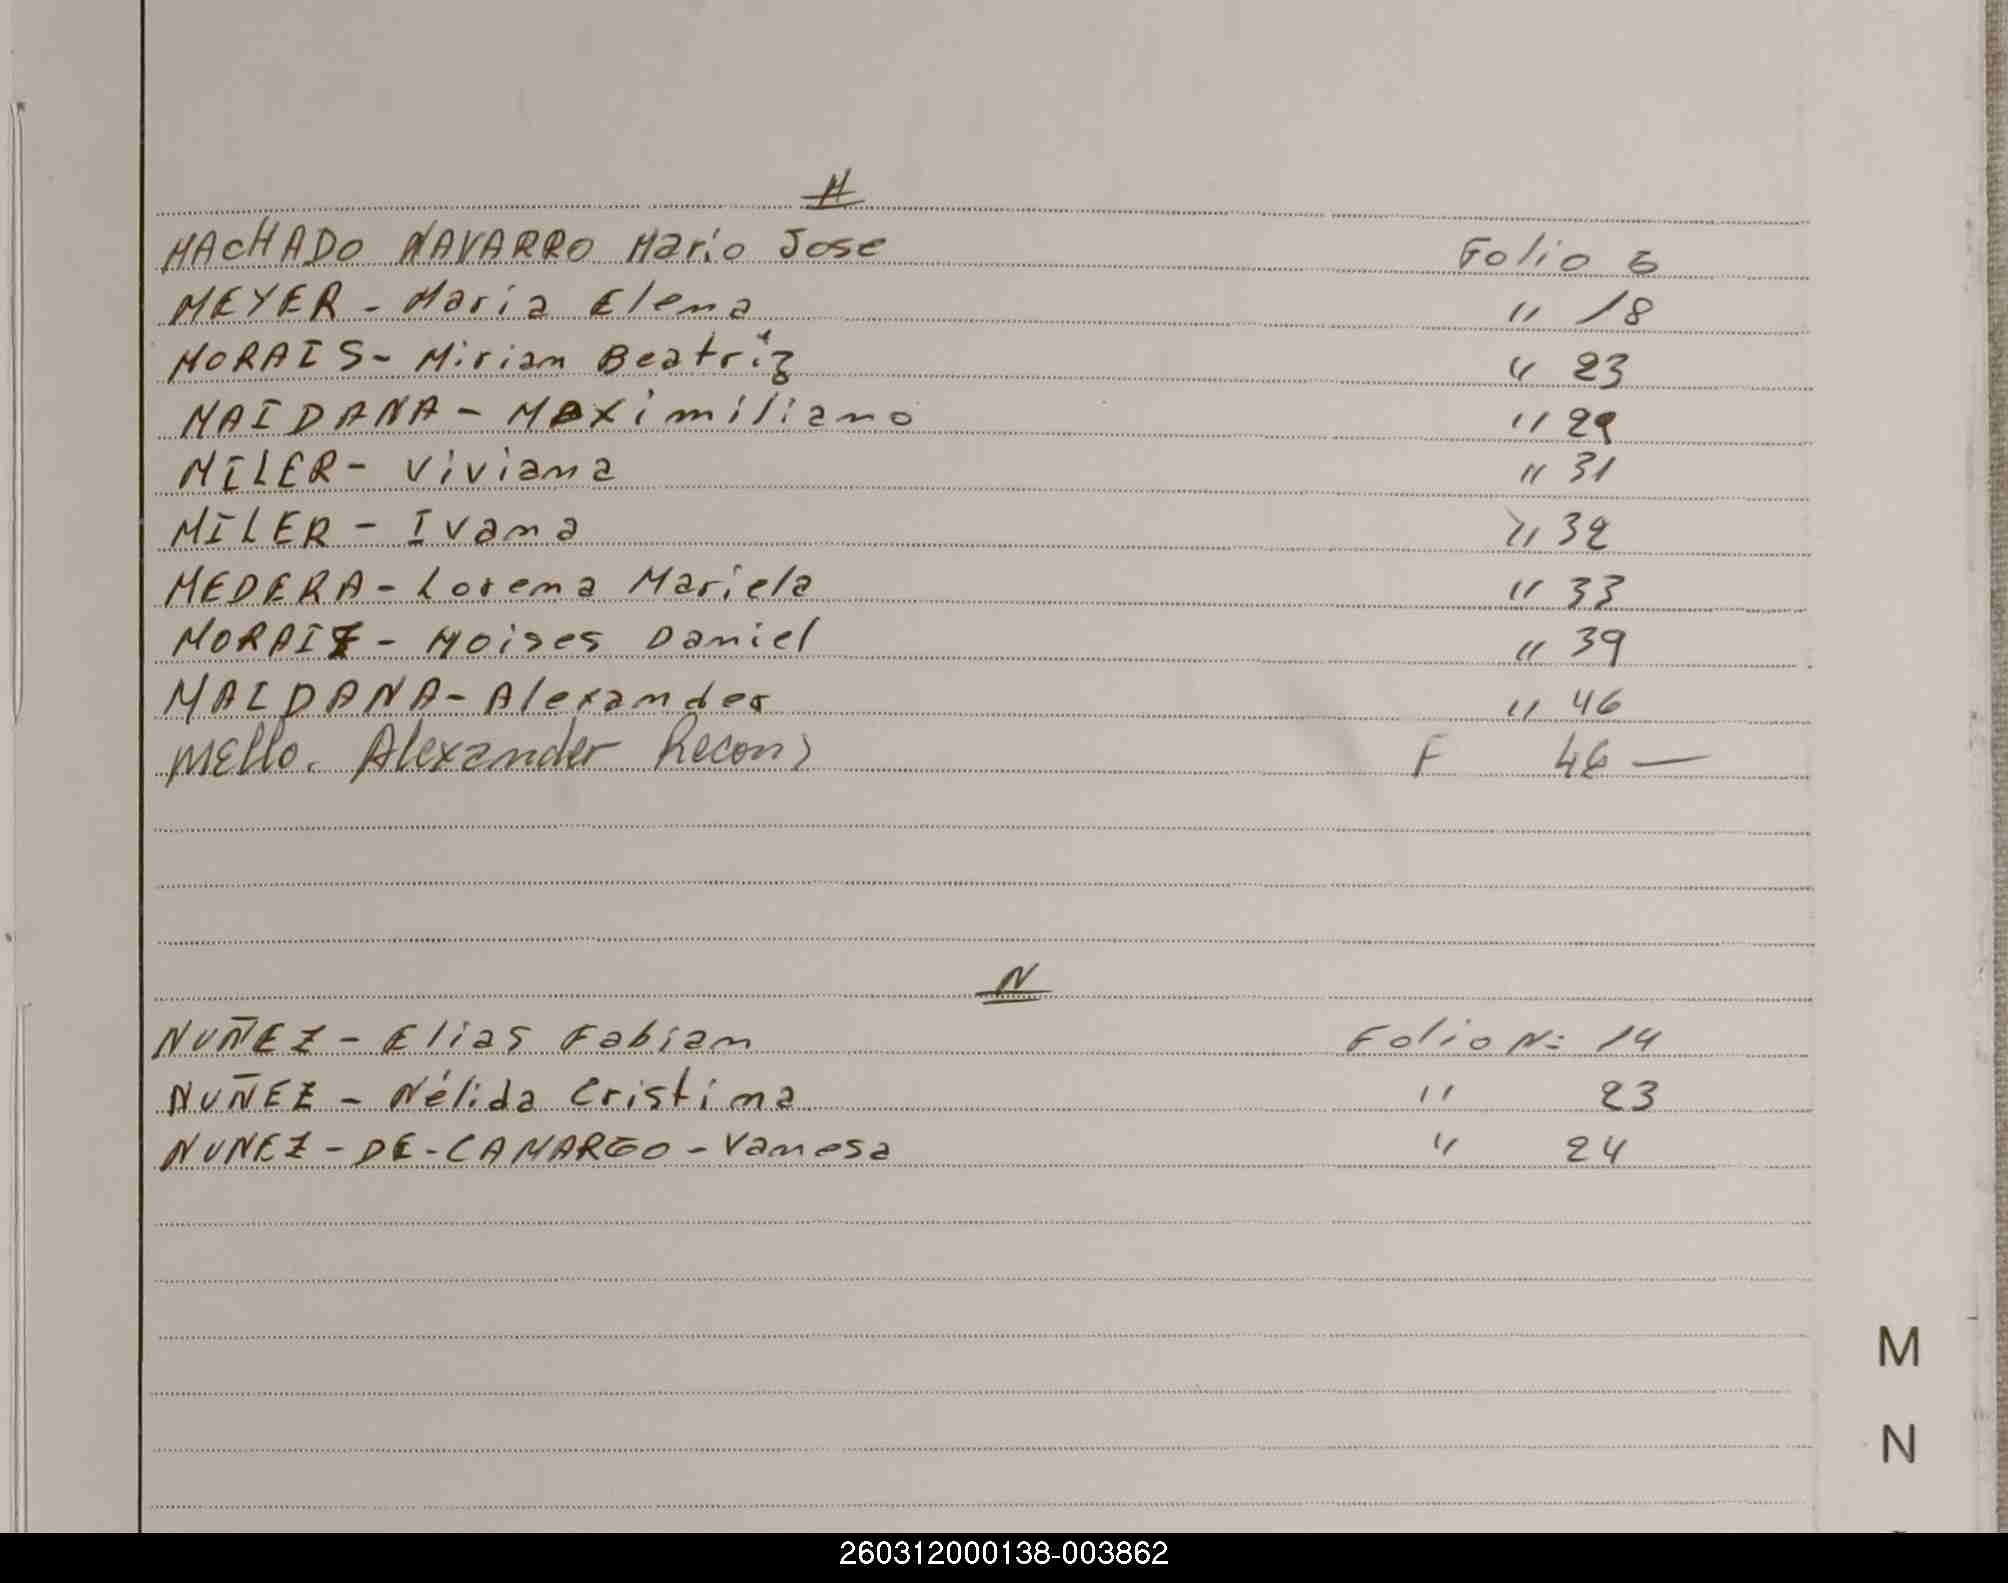 M
MACHADO NAVARRO Mario Jose Folio 6
MEYER - Maria Elena " 18
MORAIS - Mirian Beatriz " 23
MAIDANA - Maximiliano " 29
MILER - Viviana " 31
MILER - Ivana " 32
MEDERA - Lorena Mariela " 33
MORAIZ - Moises Daniel " 39
MAIDANA - Alexander " 46
Mello. Alexander Recon) F 46 —
N
NUÑEZ - Elias Fabian Folio N: 14
NUÑEZ - Nélida Cristina " 23
NUNEZ - DE - CAMARGO - Vanesa " 24
M
N
260312000138-003862